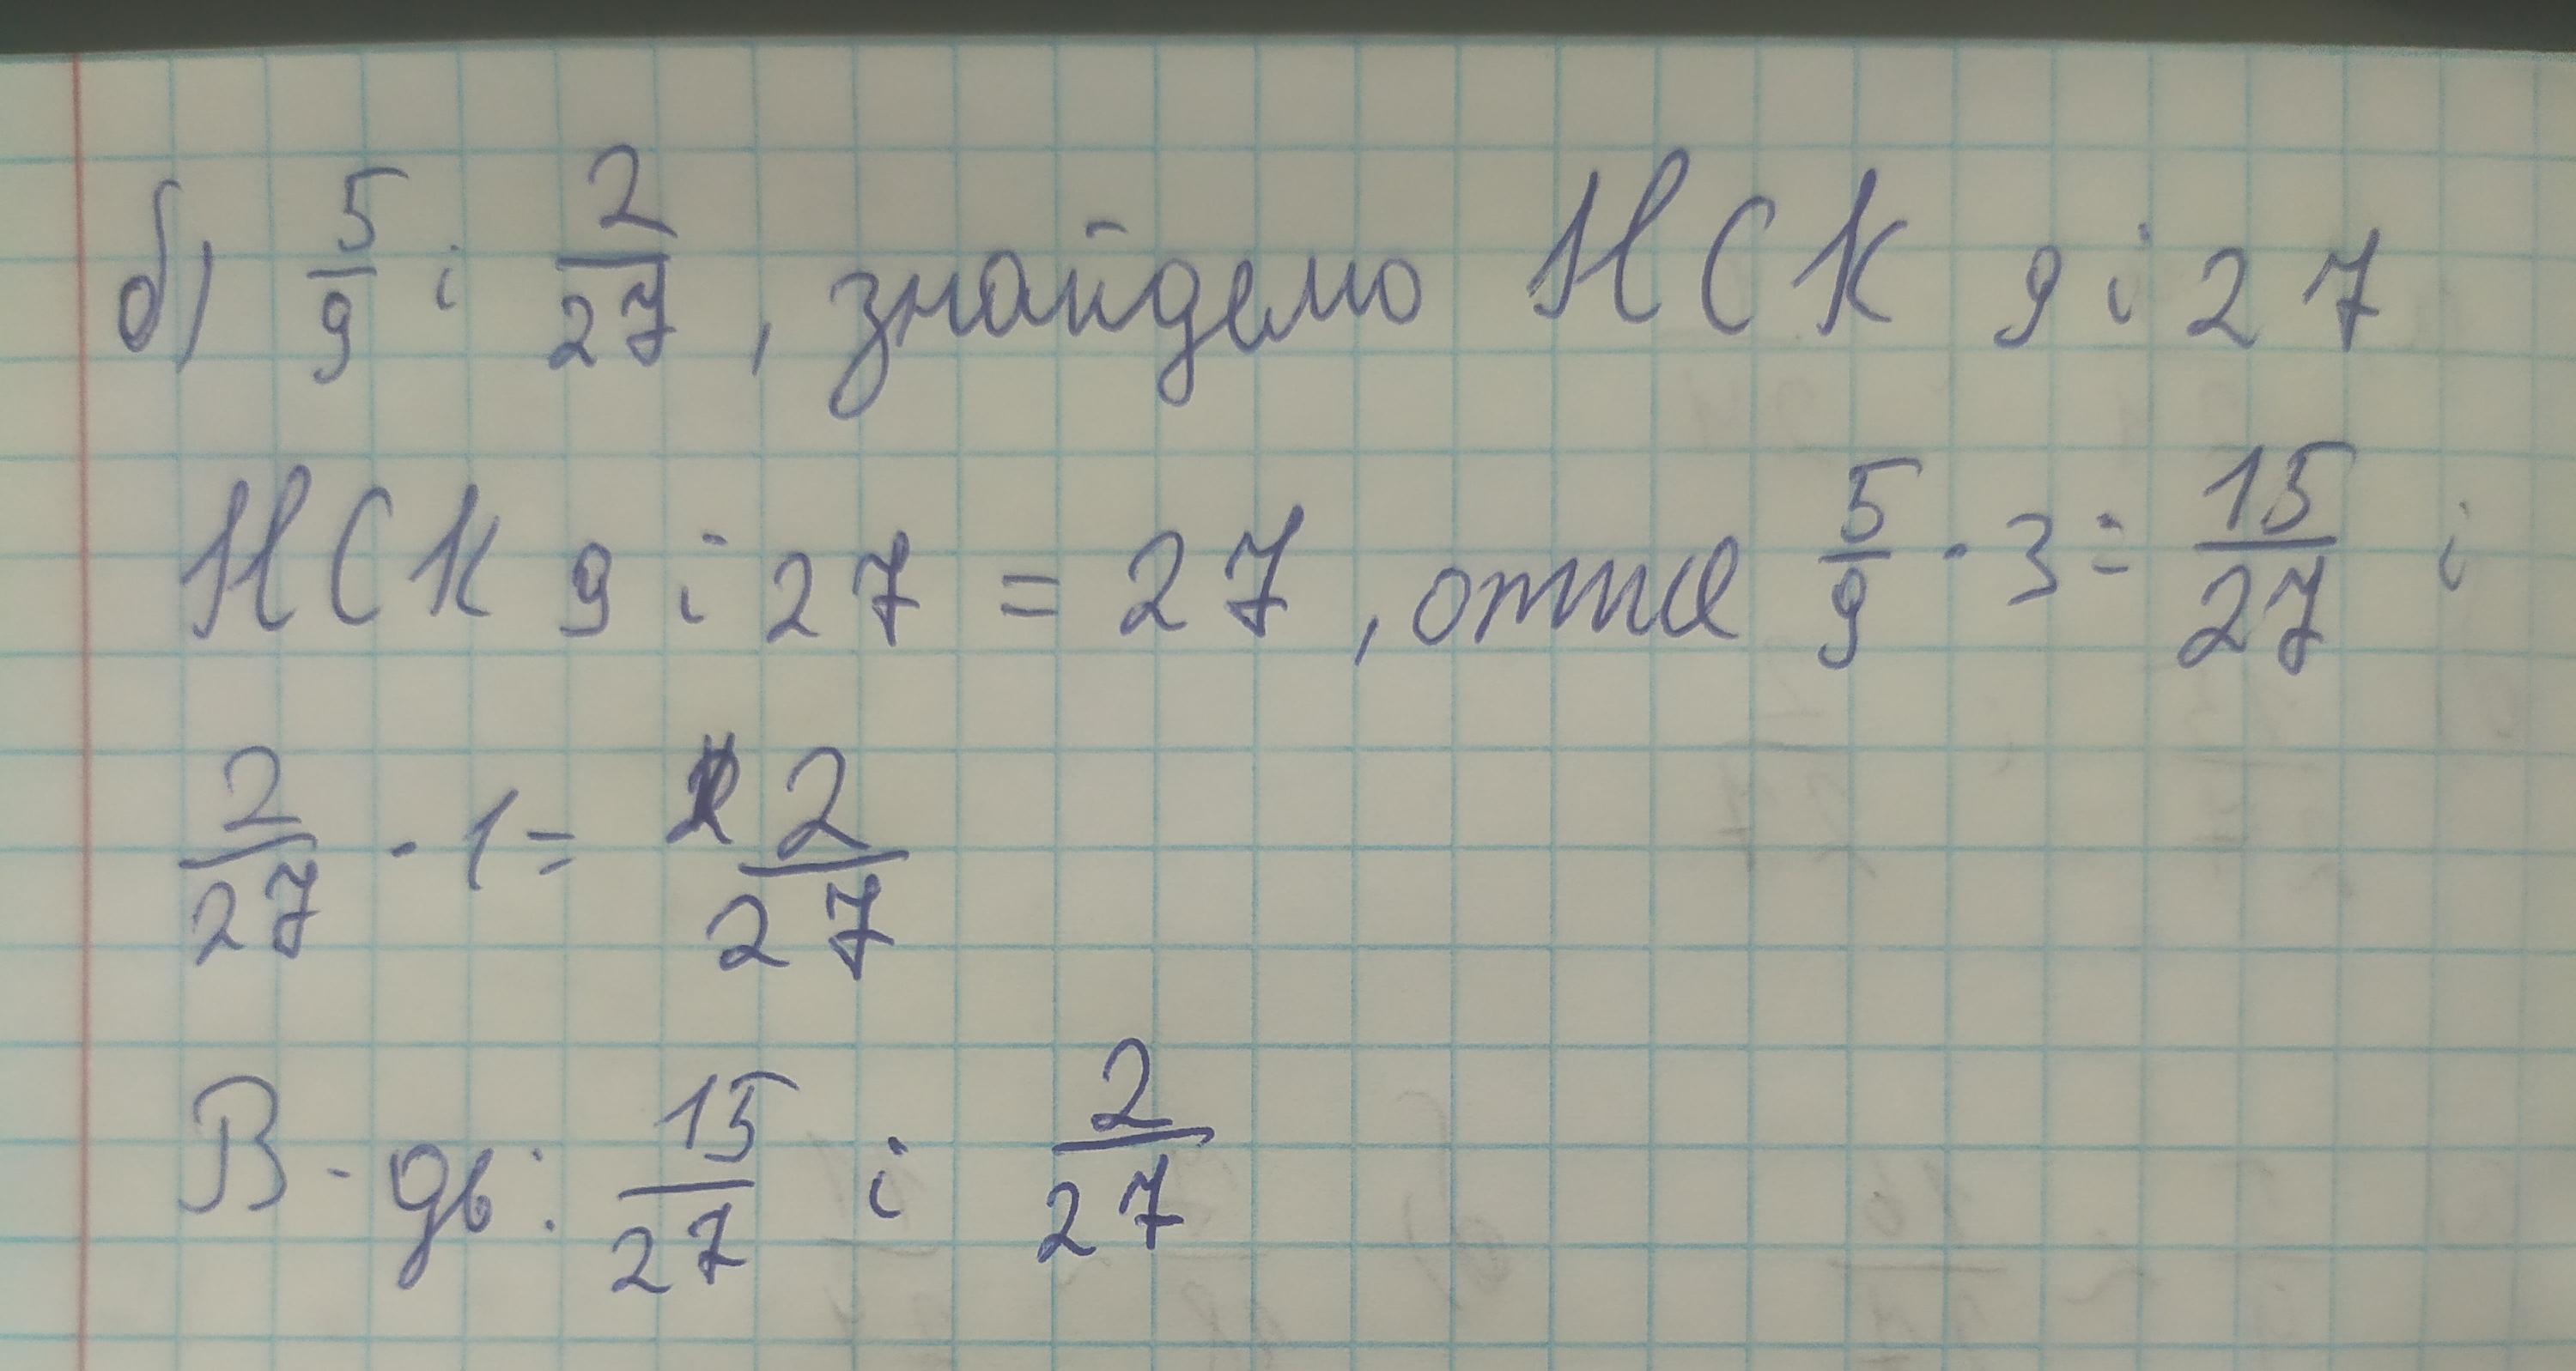 б) 5/9 і 2/27, знайдемо НСК 9 і 27
НСК 9 і 27 = 27, отже 5/9 · 3 = 15/27 і
2/27 · 1 = 2/27
В-дь: 15/27 і 2/27